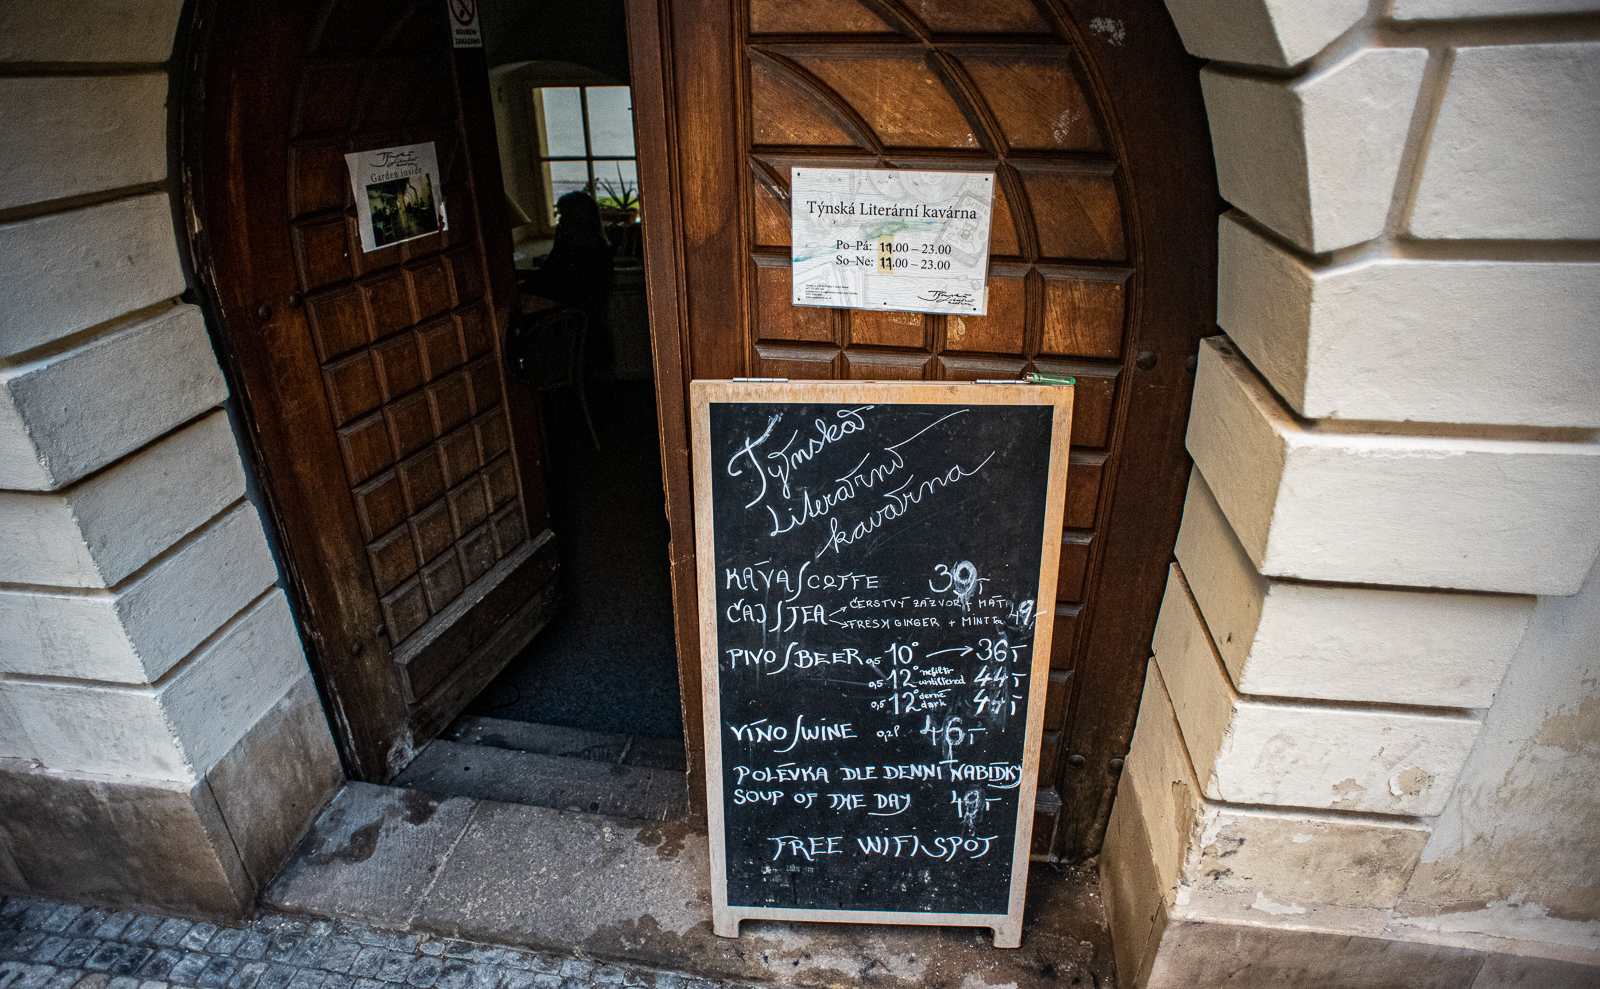 KOUŘENÍ
ZAKÁZÁNO
Garden inside
Týnská Literární kavárna
Po–Pá: 11.00 – 23.00
So–Ne: 11.00 – 23.00
Týnská
Literární
kavárna
KÁVA/COFFE 39,-
ČAJ/TEA ČERSTVÝ ZÁZVOR + MÁTA 49,-
FRESH GINGER + MINT
PIVO/BEER 0,5 10° → 36,-
0,5 12° nefiltr unfiltered 44,-
0,5 12° černé dark
VÍNO/WINE 0,2l 46,-
POLÉVKA DLE DENNÍ NABÍDKY
SOUP OF THE DAY 49,-
FREE WIFI SPOT